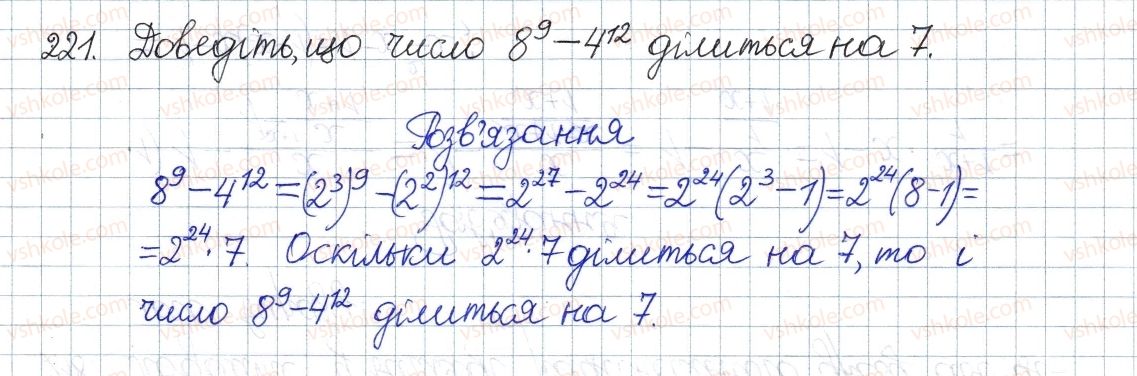 221. Доведіть, що число 8⁹ – 4¹² ділиться на 7.
Розв'язання
8⁹ – 4¹² = (2³)⁹ – (2²)¹² = 2²⁷ – 2²⁴ = 2²⁴(2³ – 1) = 2²⁴(8 – 1) =
= 2²⁴ · 7. Оскільки 2²⁴ · 7 ділиться на 7, то і
число 8⁹ – 4¹² ділиться на 7.